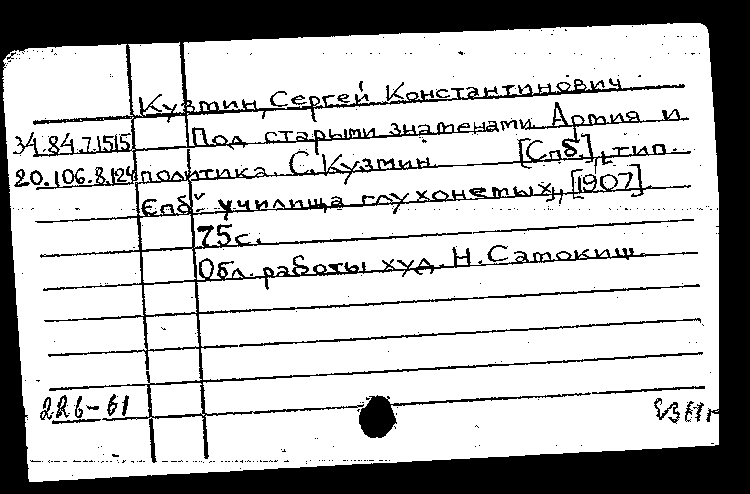 Кузмин, Сергей Константинович
34.84.7.1515 Под старыми знаменами Армия и
20.106.8.124 политика. С. Кузмин. [Спб.], тип.
Спб. училища глухонемых, [1907].
75с.
Обл. работы худ. Н. Самокиш.
226-61